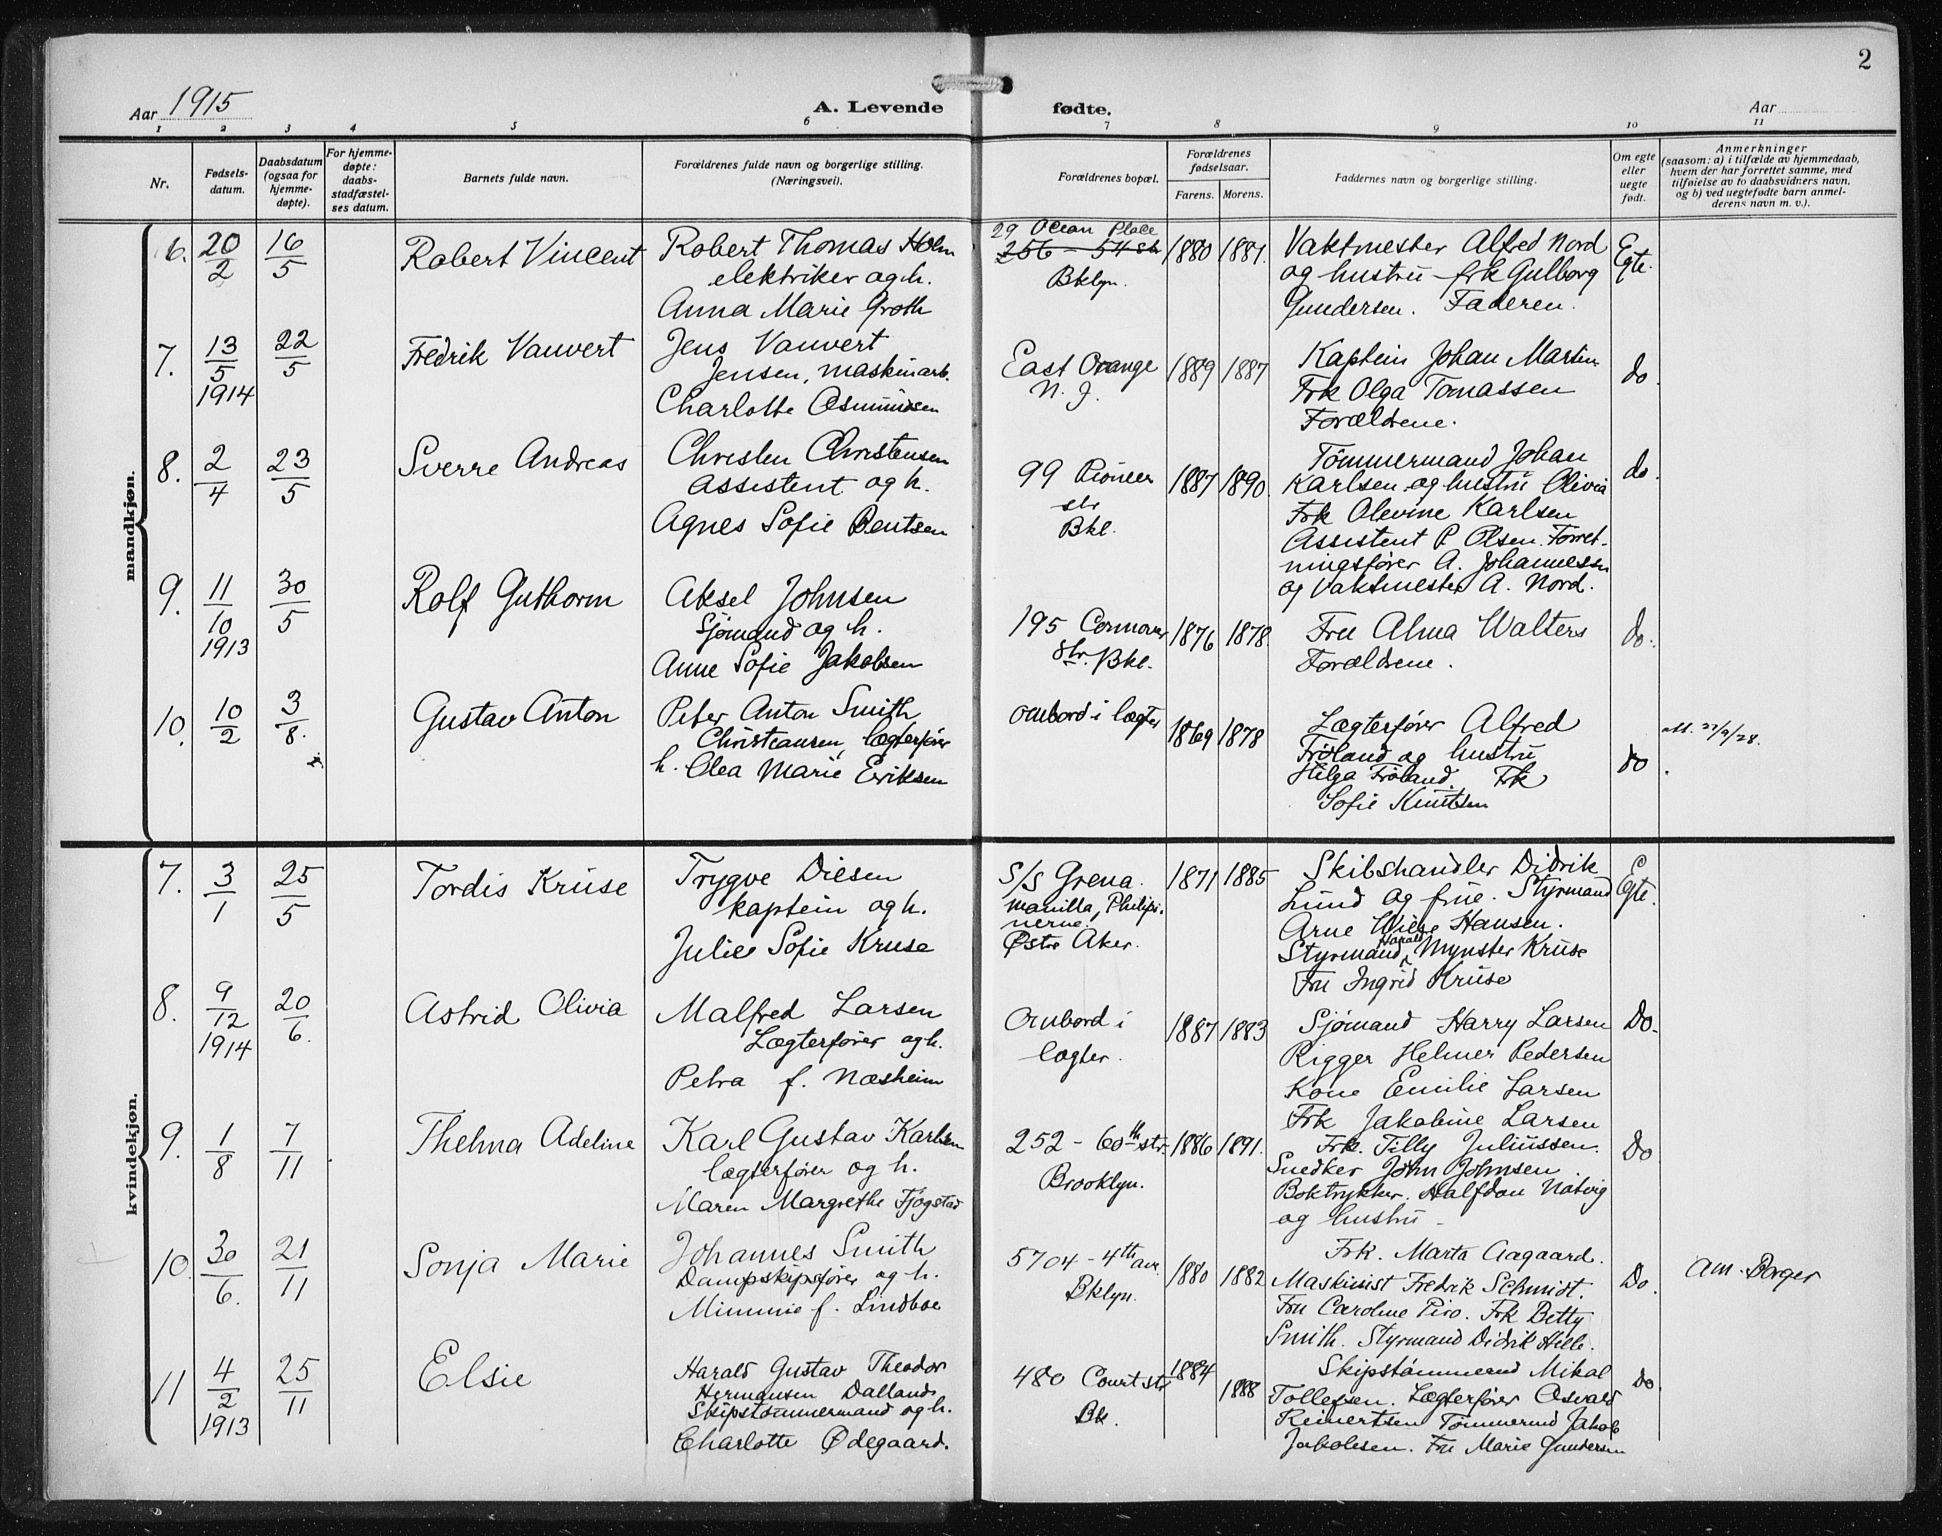 2
Aar 1915
A. Levende fødte.
Aar
1 2 3 4 5 6 7 8 9 10 11
Nr.
Fødsels-
datum.
Daabsdatum
(ogsaa for
hjemme-
døpte).
For hjemme-
døpte:
daabs-
stadfæstel-
ses datum.
Barnets fulde navn.
Forældrenes fulde navn og borgerlige stilling.
(Næringsvei).
Forældrenes bopæl.
Forældrenes
fødselsaar.
Farens. Morens.
Faddernes navn og borgerlige stilling.
Om egte
eller
uegte
født.
Anmerkninger
(saasom: a) i tilfælde av hjemmedaab,
hvem der har forrettet samme, med
tilføielse av to daabsvidners navn,
og b) ved uegtefødte barn anmel-
derens navn m. v.).
mandkjøn.
6. 20/2 16/5
Robert Vincent
Robert Thomas Holm
elektriker og h.
Anna Marie Groth
29 Ocean Place
256 - 54 str
Bklyn.
1880 1881.
Vaktmester Alfred Nord
og hustru - frk Gulborg
Gundersen. Faderen.
Egte.
7. 13/5 1914 22/5
Fredrik Vauvert
Jens Vauvert
Jensen, maskinarb.
Charlotte Osmundsen
East Orange
N. J.
1889 1887
Kaptein Johan Martin
Frk Olga Tomassen
Forældrene.
do.
8. 2/4 23/5
Sverre Andreas
Christen Christensen
assistent og h.
Agnes Sofie Bentsen
99 Pioneer
str
Bkl.
1887 1890.
Tömmermand Johan
Karlsen og hustru Olivia
Frk Olevine Karlsen
Assistent P Olsen. Forret-
ningsfører A. Johannessen
og Vaktmester A. Nord.
do.
9. 11/10 1913 30/5
Rolf Guthorm
Aksel Johnsen
Sjømand og h.
Anne Sofie Jakobsen
195 Connover
str. Bkl.
1876 1878.
Fru Alma Walters
Forældrene.
do.
10. 10/2 3/8.
Gustav Anton
Peter Anton Smith
Christiansen, lægterfører
h. Olea Marie Eriksen
ombord i lægter
1869 1878
Lægterfører Alfred
Frøland og hustru
Helga Frøland. Frk
Sofie Knutsen
do
att. 22/9/28.
kvindekjøn.
7. 3/1 25/5
Tordis Kruse
Trygve Diesen
kaptein og h.
Julie Sofie Kruse
S/S Grena.
Manilla, Philipi-
nerne.
Østre Aker.
1871 1885
Skibshandler Didrik
Lund og frue. Styrmand
Arne Wiese Hansen.
Styrmand Harald Mynster Kruse
Fru Ingrid Kruse
Egte.
8. 9/12 1914 20/6.
Astrid Olivia
Malfred Larsen
Lægterfører og h.
Petra f. Næsheim
Ombord i
lægter.
1887 1883
Sjømand Harry Larsen
Rigger Helmer Pedersen
Kone Emilie Larsen
Frk Jakobine Larsen
Do.
9. 1/8 7/11
Thelma Adeline
Karl Gustav Karlsen
lægterfører og h.
Maren Margrethe Fjogstad
252 - 60th str.
Brooklyn.
1886 1891.
Frk. Tilly Juliussen.
Snedker John Johnsen
Boktrykker. Halfdan Natvig
og hustru -
Do
10. 30/6. 21/11
Sonja Marie
Johannes Smith
Dampskipsfører og h.
Mimmie f. Lindboe
5704 - 4th av.
Bklyn.
1880 1882
Frk. Marta Aagaard.
Maskinist Fredrik Schmidt.
Fru Caroline Piro. Frk Betty
Smith. Styrmand Didrik Hille.
Do.
Am. Borger
11 4/2 1913 25/11
Elsie
Harald Gustav Theodor
Hermansen Dallands
Skipstømmermand og h.
Charlotte Ødegaard.
480 Court str
Bk.
1884 1888
Skipstømmermd Mikal
Tollefsen. Lægterfører Osvald
Reinertsen Tömmermd Jakob
Jakobsen. Fru Marie Gundersen
Do.